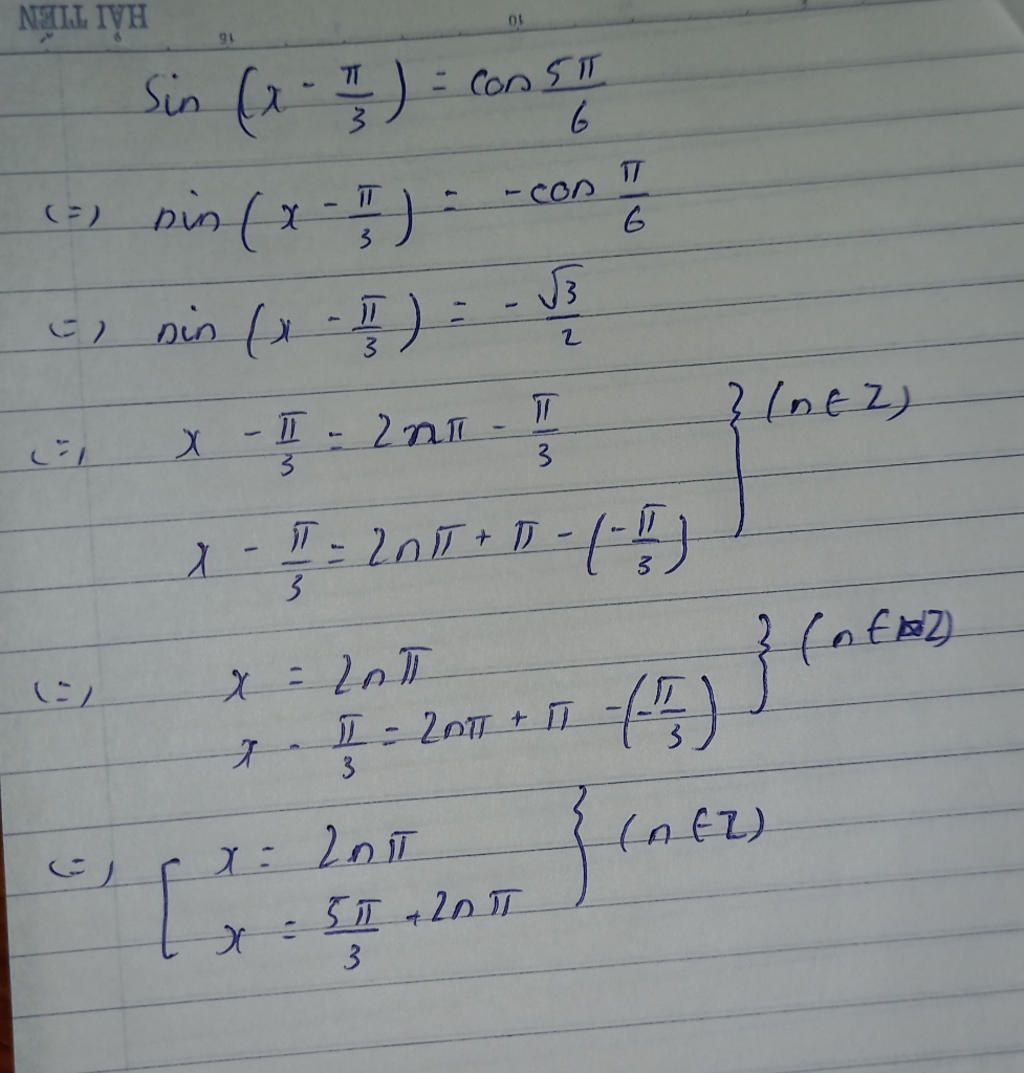 HẢI TIẾN
16 10
Sin (x - π/3) = cos 5π/6
<=> sin (x - π/3) = -cos π/6
<=> sin (x - π/3) = -√3/2
<=> x - π/3 = 2nπ - π/3 } (n ∈ Z)
x - π/3 = 2nπ + π - (-π/3)
<=> x = 2nπ } (n ∈ Z)
x - π/3 = 2nπ + π - (-π/3)
<=> [ x = 2nπ } (n ∈ Z)
x = 5π/3 + 2nπ